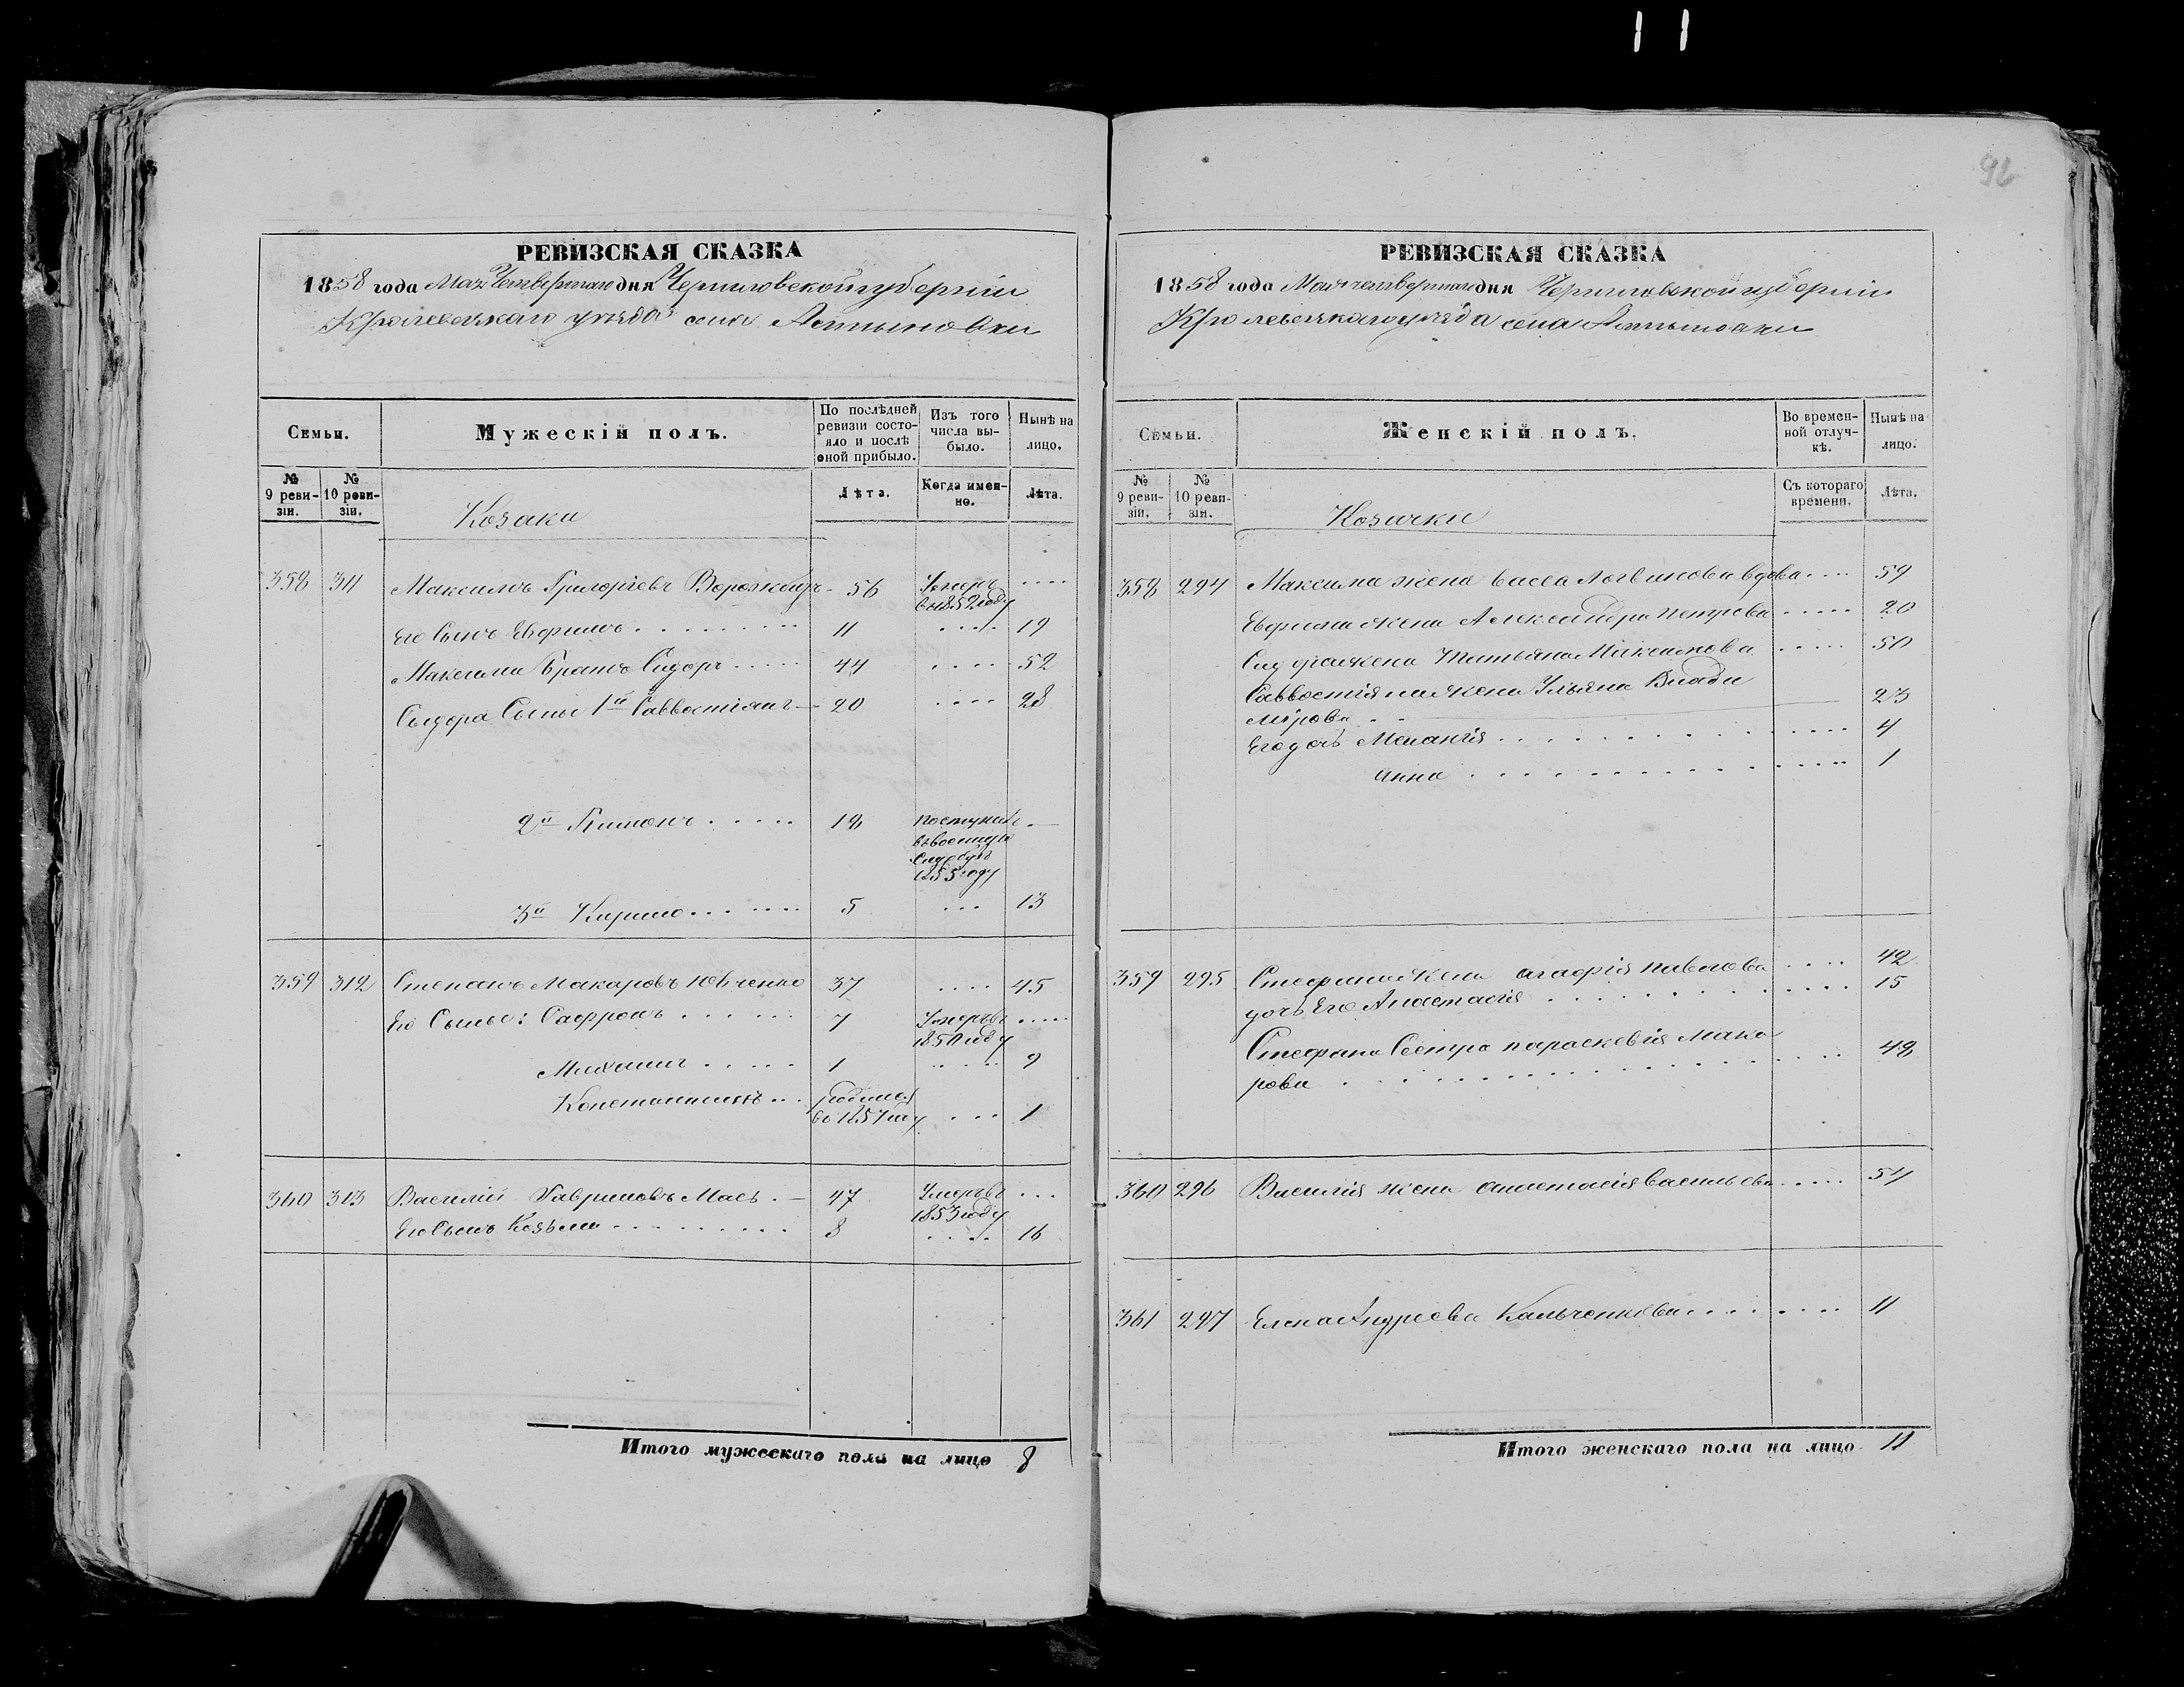 11
92
РЕВИЗСКАЯ СКАЗКА
1858 года Мая Четвертаго дня Черниговской губерніи
Кролевецкаго уѣзда села Алтыновки
Семьи.
Мужескій полъ.
По послѣдней ревизіи состояло и послѣ оной прибыло.
Изъ того числа выбыло.
Нынѣ на лицо.
№ 9 ревизіи.
№ 10 ревизіи.
Козаки
Лѣта.
Когда именно.
Лѣта.
358 311 Максимъ Григоріевъ 56 Умеръ в 1852 году ....
Его Сынъ Ефримъ 11 .... 19
Максима братъ Сидоръ 44 .... 52
Сыдора Сыны 1й Саввостіянъ 20 .... 28
2й 18 поступилъ въ военную службу въ 1855 году
3й Кирило 5 ... 13
359 312 Степанъ Макаровъ Ювченко 37 .... 45
Его Сыны: Сафронъ 7 Умеръ въ 1850 году ....
Михаилъ 1 .... 9
Константинъ родился въ 1857 году ... 1
360 313 Василій Гавриловъ 47 Умеръ въ 1853 году ...
Его Сынъ Козьма 8 .... 16
Итого мужескаго пола на лицо 8
РЕВИЗСКАЯ СКАЗКА
1858 года Мая четвертаго дня Черниговской губерніи
Кролевецкаго уѣзда села Алтыновки
Семьи.
Женскій полъ.
Во временной отлучкѣ.
Нынѣ на лицо.
№ 9 ревизіи.
№ 10 ревизіи.
Козачки
Съ котораго времени.
Лѣта.
358 294 Максима жена Васса Логвинова вдова .... 59
Ефрима жена Александра Петрова ..... 20
Сидора жена Татьяна Максимова ..... 50
Саввостіяна жена Ульяна Влади
мірова 23
Его дочь Меланія 4
Анна 1
359 295 Стефана жена Агафія Павлова .... 42
дочь Его Анастасія 15
Стефана Сестра Параскевія Мака
рова 48
360 296 Василія жена Анастасія Васильева .... 54
361 297 Елена Андреева Кальченкова 11
Итого женскаго пола на лицо 11